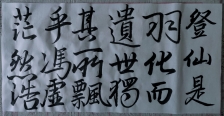 茫然浩
乎馮虛
其所飄
遺世獨
羽化而
登仙是